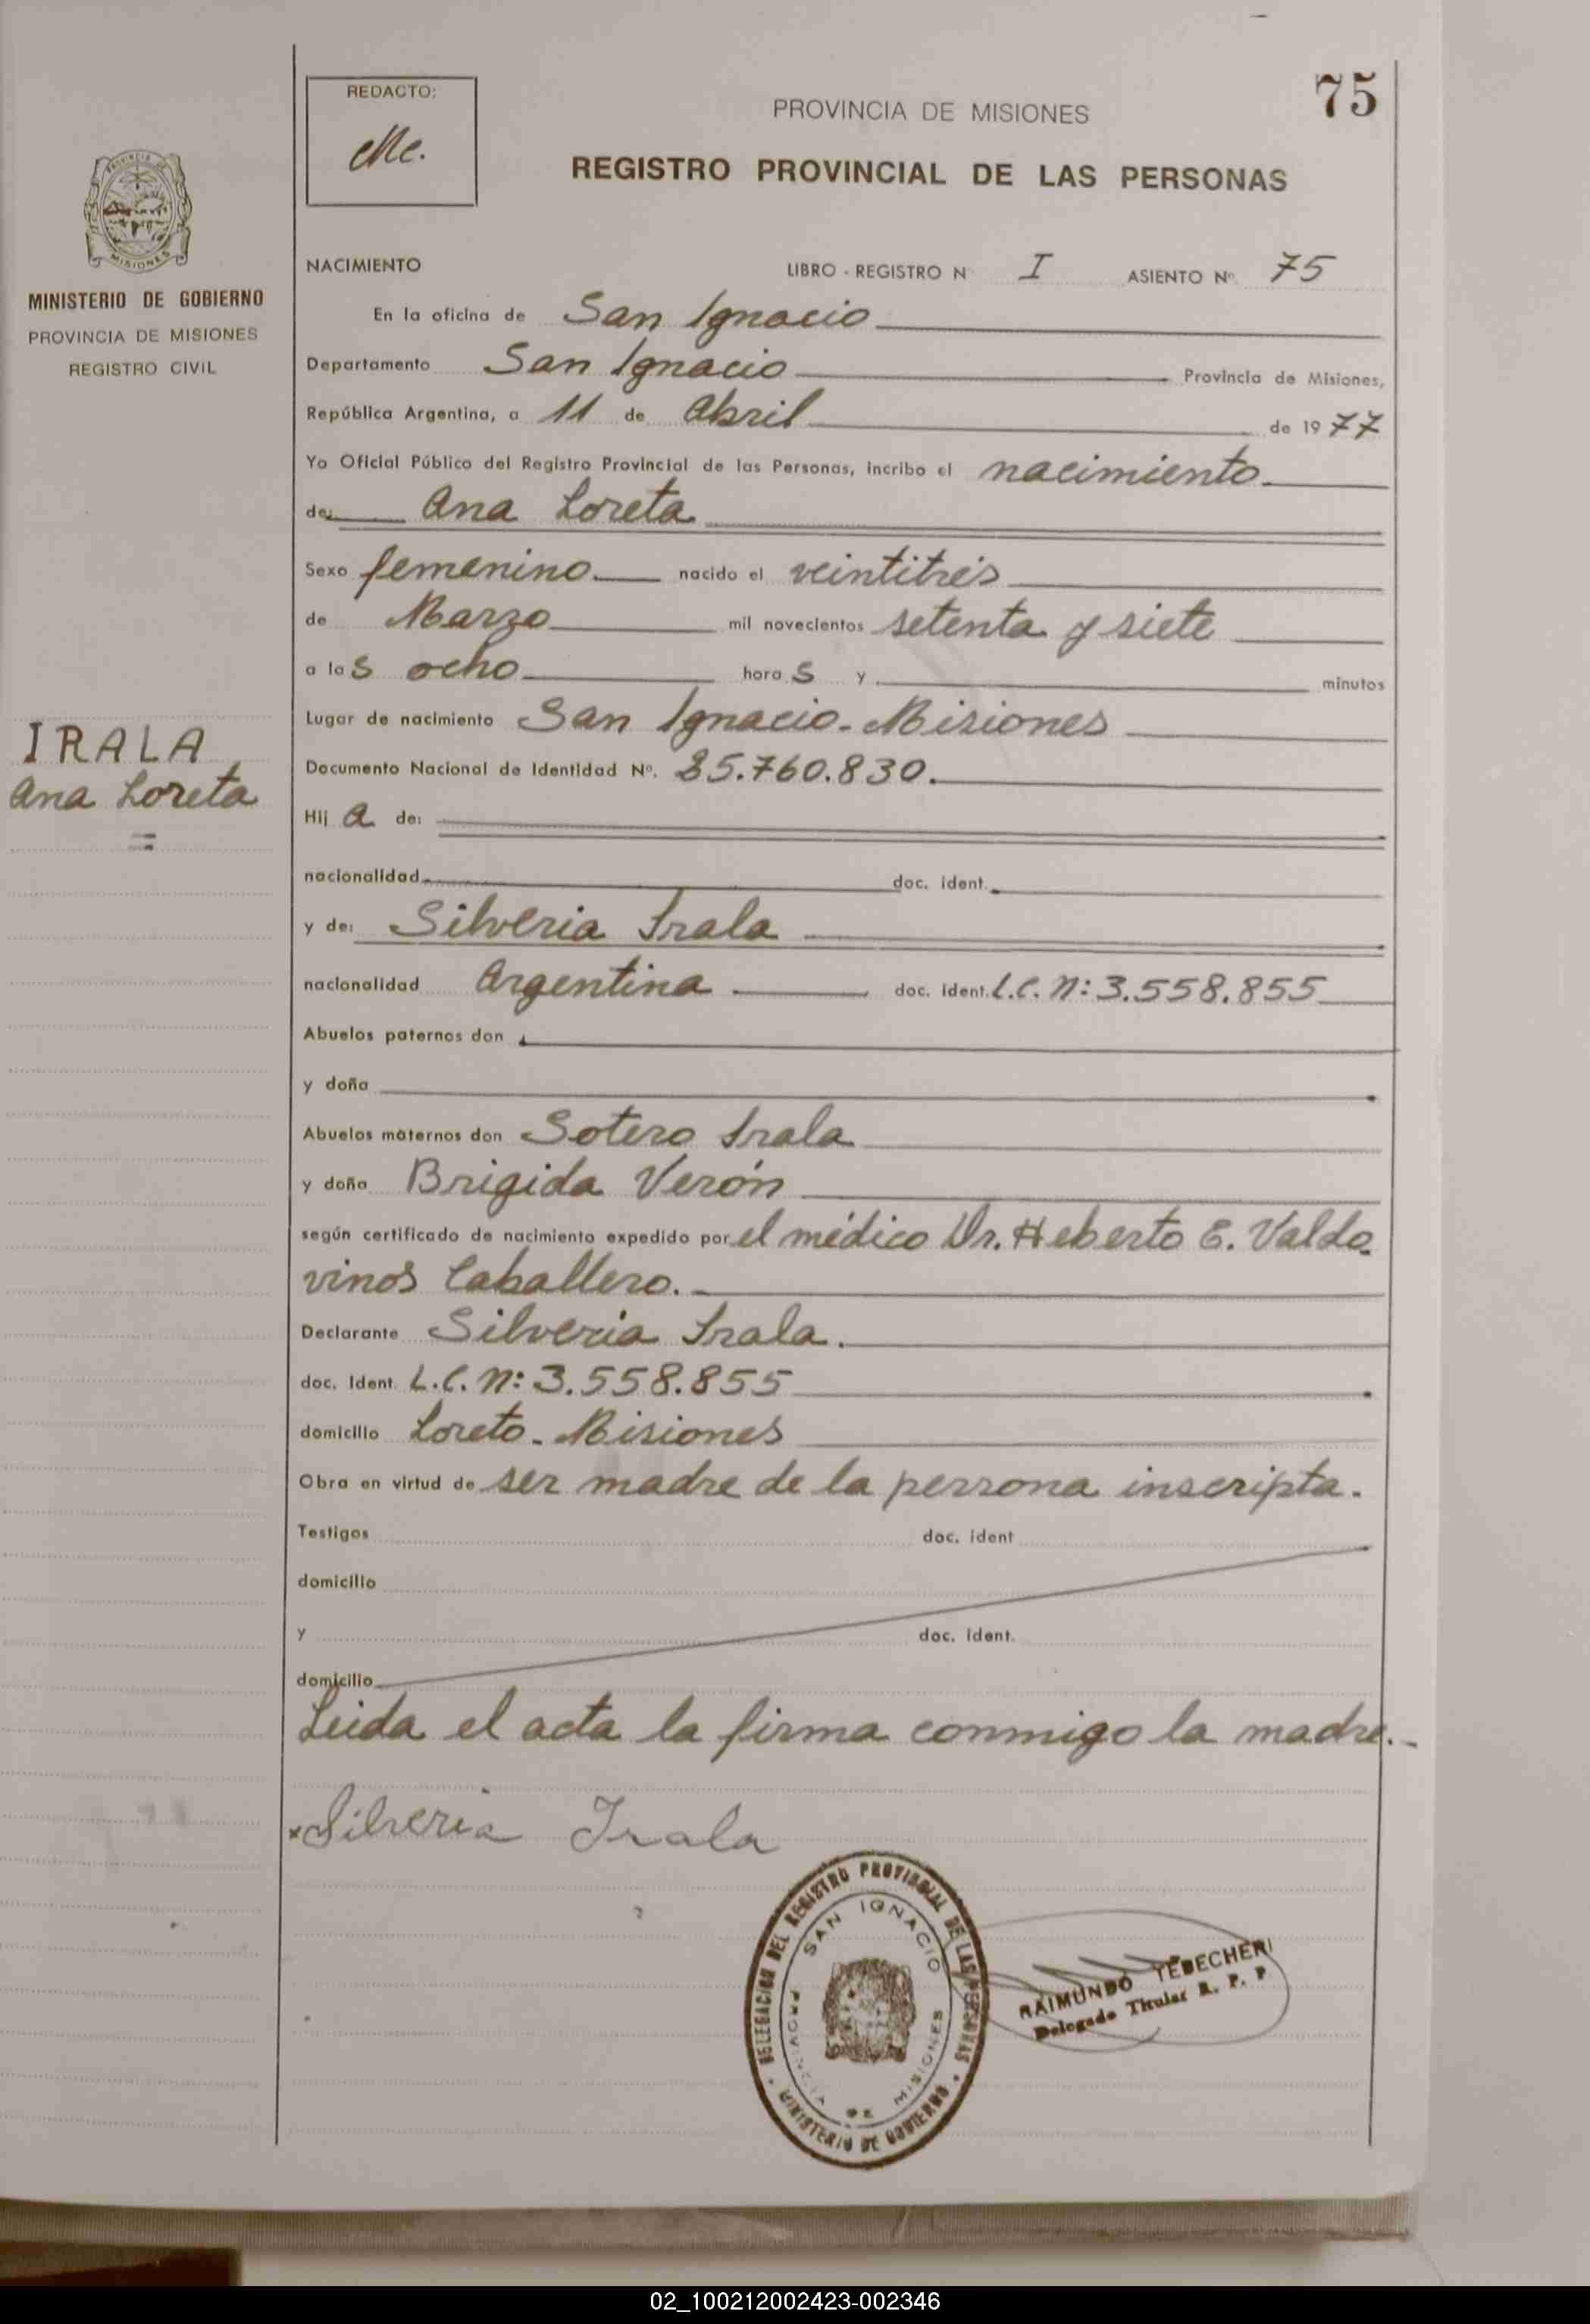 75
REDACTO:
Me.
PROVINCIA DE MISIONES
REGISTRO PROVINCIAL DE LAS PERSONAS
MISIONES
MINISTERIO DE GOBIERNO
PROVINCIA DE MISIONES
REGISTRO CIVIL
IRALA
Ana Loreta
NACIMIENTO LIBRO - REGISTRO N° I ASIENTO N° 75
En la oficina de San Ignacio
Departamento San Ignacio Provincia de Misiones,
República Argentina, a 11 de Abril de 1977
Yo Oficial Público del Registro Provincial de las Personas, incribo el nacimiento
de: Ana Loreta
Sexo femenino nacido el veintitrés
de Marzo mil novecientos setenta y siete
a las ocho horas y minutos
Lugar de nacimiento San Ignacio - Misiones
Documento Nacional de Identidad N°. 25.760.830.
Hija de:
nacionalidad doc. ident.
y de: Silveria Irala
nacionalidad Argentina doc. ident. L.C. N: 3.558.855
Abuelos paternos don
y doña
Abuelos maternos don Sotero Irala
y doña Brigida Verón
según certificado de nacimiento expedido por el médico Dr. Heberto E. Valdo-
vinos Caballero.
Declarante Silveria Irala.
doc. Ident. L.C. N: 3.558.855
domicilio Loreto - Misiones
Obra en virtud de ser madre de la persona inscripta.
Testigos doc. ident
domicilio
y doc. ident.
domicilio
Leida el acta la firma conmigo la madre.-
Silveria Irala
DELEGACION DEL REGISTRO PROVINCIAL DE LAS PERSONAS
SAN IGNACIO
PROVINCIA DE MISIONES
MINISTERIO DE GOBIERNO
RAIMUNDO TEBECHERI
Delegado Titular R. P. P
02_100212002423-002346